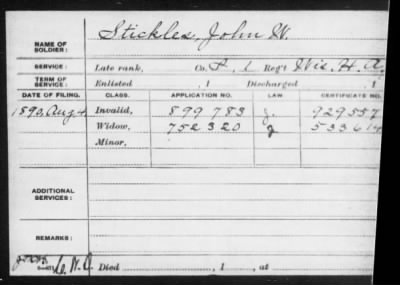 NAME OF SOLDIER: Stickles, John W.
SERVICE: Late rank, Co. L, 1 Reg't Wis. H. A.
TERM OF SERVICE: Enlisted , 1 Discharged , 1
DATE OF FILING. CLASS. APPLICATION NO. LAW. CERTIFICATE NO.
1890, Aug 4 Invalid, 899 783 J. 929557
Widow, 752320
Minor,
ADDITIONAL SERVICES:
REMARKS:
Died , 1 , at